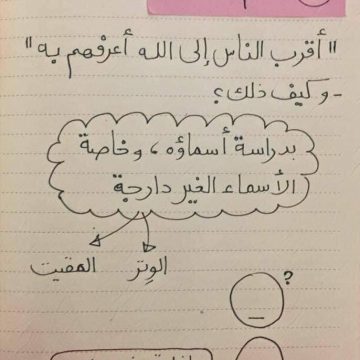 "أقرب الناس إلى الله أعرفهم به"
- وكيف ذلك؟
بدراسة أسماؤه، وخاصة
الأسماء الغير دارجة
الوِتر
المقيت
?